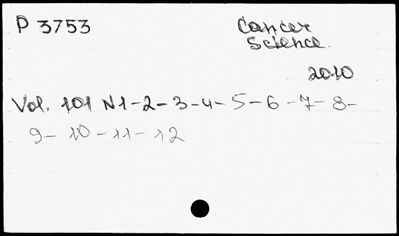 P 3753
Cancer
Science.
2010
Vol. 101 N1-2-3-4-5-6-7-8-
9-10-11-12